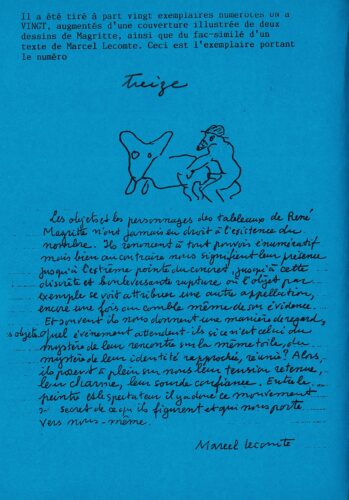 Il a été tiré à part vingt exemplaires numérotés UN à
VINGT, augmentés d'une couverture illustrée de deux
dessins de Magritte, ainsi que du fac-similé d'un
texte de Marcel Lecomte. Ceci est l'exemplaire portant
le numéro
treize
Les objets et les personnages des tableaux de René
Magritte n'ont jamais eu droit à l'existence du
nombre. Ils renoncent à tout pouvoir énumératif
mais bien au contraire nous signifient leur présence
jusqu'à l'extrême pointe du concret, jusqu'à cette
discrète et bouleversante rupture où l'objet par
exemple se voit attribuer une autre appellation,
encore une fois au comble même de son évidence.
Et souvent ils nous donnent une manière de regard,
s objets. Quel événement attendent-ils si ce n'est celui du
mystère de leur rencontre sur la même toile, du
mystère de leur identité rapprochée, réunie? Alors,
ils posent à plein sur nous leur tension retenue,
leur charme, leur sourde confiance. Entre la
peinture et le spectateur il y a donc ce mouvement
secret de ce qu'ils figurent et qui nous porte
vers nous-même.
Marcel Lecomte